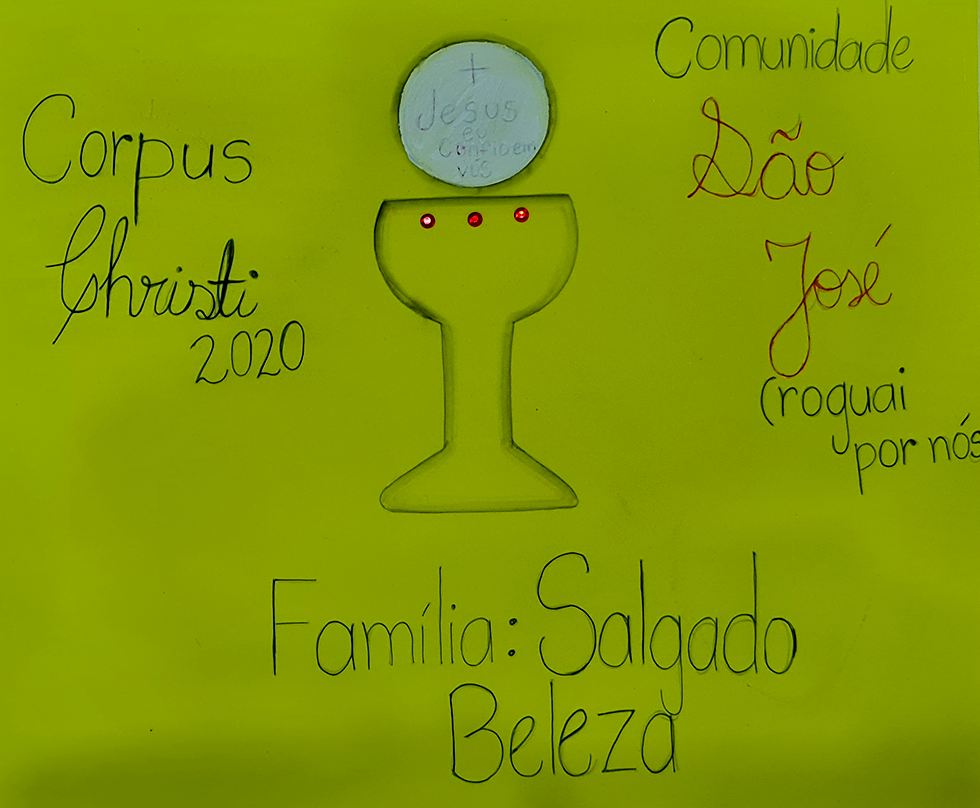 Corpus
Christi
2020
+
Jesus
eu
Confio em
vós
Comunidade
São
José
(roguai
por nós
Família: Salgado
Beleza